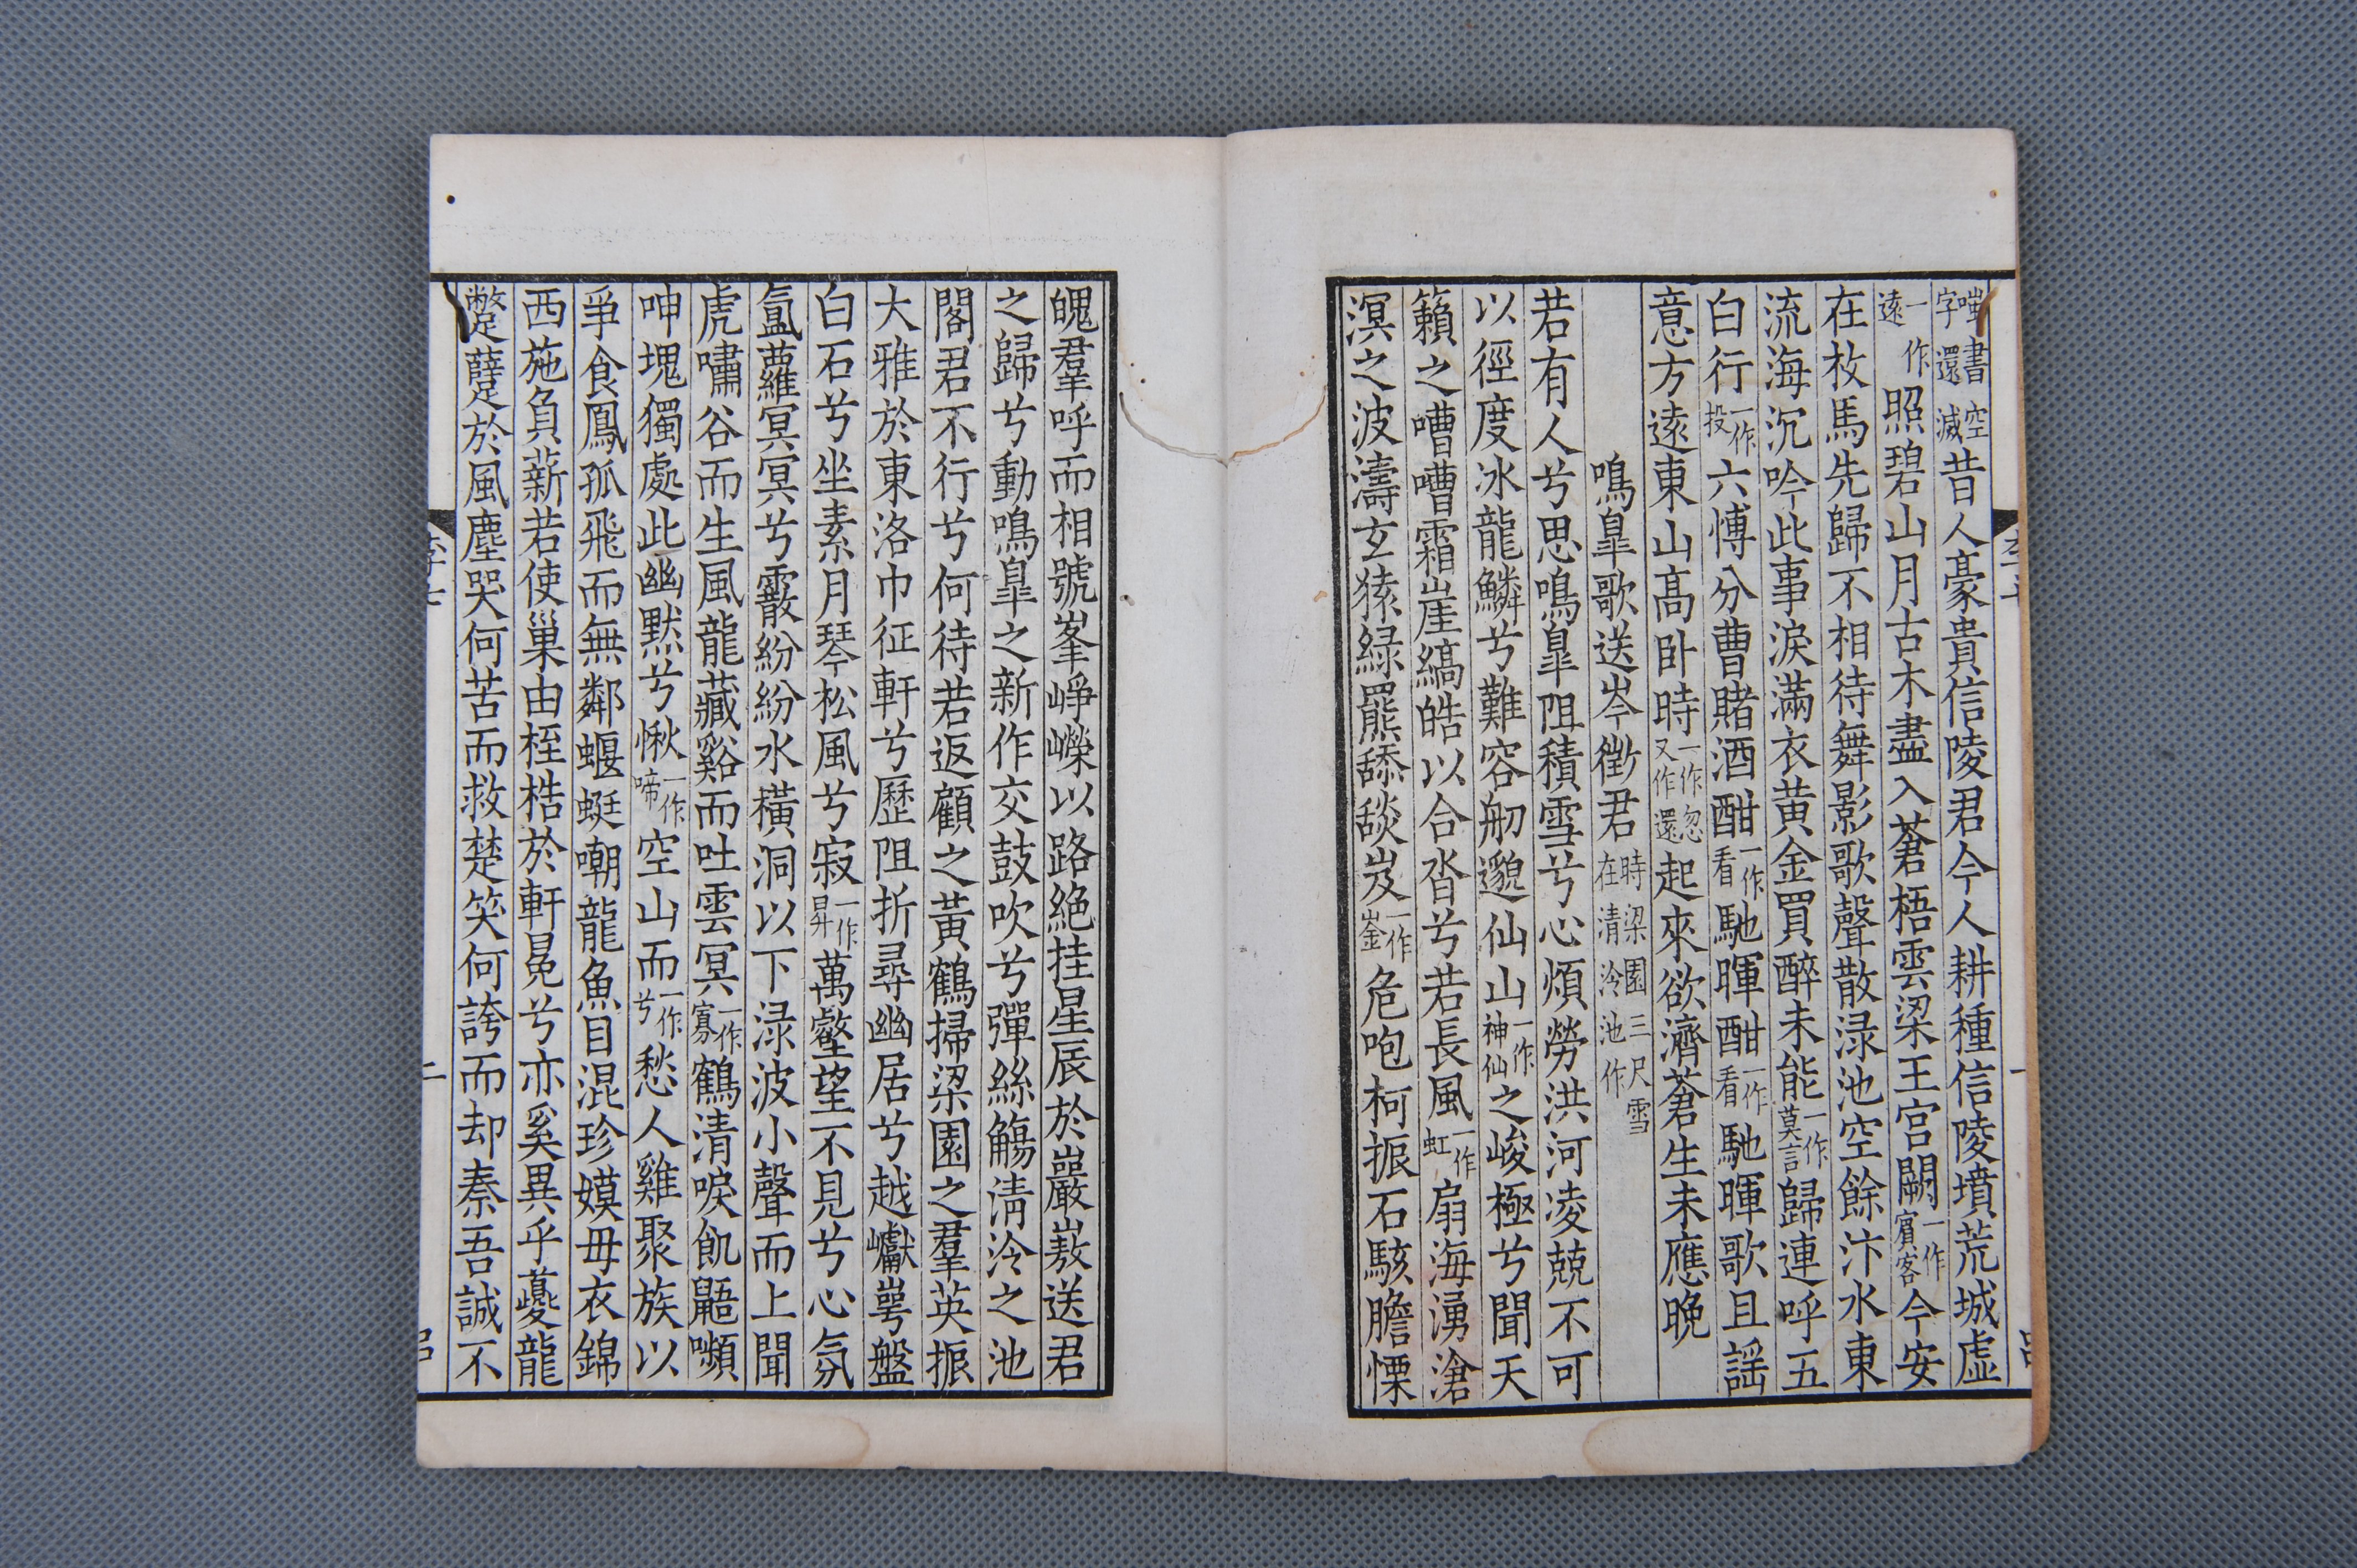 蚩書空字還滅昔人豪貴信陵君今人耕種信陵墳荒城虛
一作遠照碧山月古木盡入蒼梧雲梁王宮闕一作賓客今安
在枚馬先歸不相待舞影歌聲散渌池空餘汴水東
流海沉吟此事淚滿衣黃金買醉未能一作莫言歸連呼五
白行一作投六博分曹賭酒酣一作看馳暉酣一作看馳暉歌且謡
意方遠東山高卧時一作忽又作還起來欲濟蒼生未應晚
鳴臯歌送岑徵君時梁園三尺雪在清泠池作
若有人兮思鳴臯阻積雪兮心煩勞洪河凌兢不可
以徑度冰龍鱗兮難容舠邈仙山一作神仙之峻極兮聞天
籟之嘈嘈霜崖縞皓以合沓兮若長風一作虹扇海湧滄
溟之波濤玄猿緑羆舔舕岌一作崟危咆柯振石駭膽慄
魄羣呼而相號峯崢嶸以路絶挂星辰於巖嶅送君
之歸兮動鳴臯之新作交鼓吹兮彈絲觴清泠之池
閣君不行兮何待若返顧之黃鶴掃梁園之羣英振
大雅於東洛巾征軒兮歷阻折尋幽居兮越巘崿盤
白石兮坐素月琴松風兮寂一作昇萬壑望不見兮心氛
氲蘿冥冥兮霰紛紛水橫洞以下渌波小聲而上聞
虎嘯谷而生風龍藏谿而吐雲冥一作寡鶴清唳飢鼯嚬
呻塊獨處此幽默兮愀一作啼空山而一作兮愁人雞聚族以
爭食鳳孤飛而無鄰蝘蜓嘲龍魚目混珍嫫母衣錦
西施負薪若使巢由桎梏於軒冕兮亦奚異乎夔龍
蹩躠於風塵哭何苦而救楚笑何誇而却秦吾誠不
二